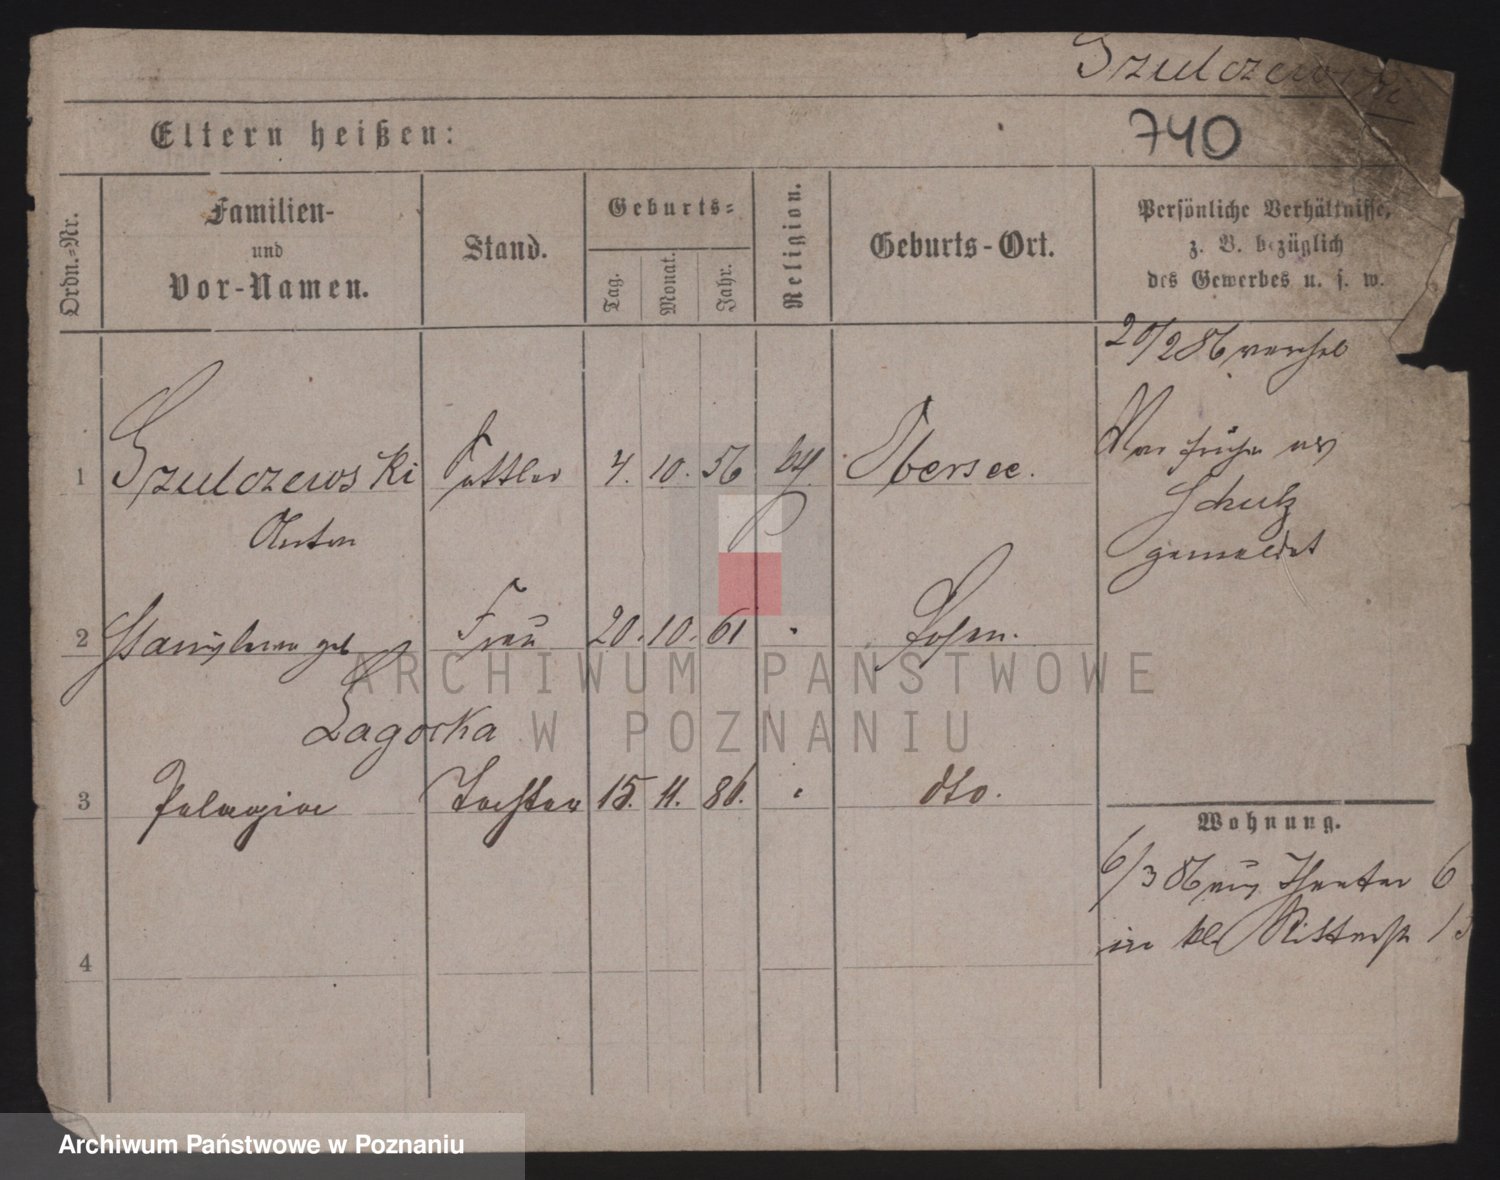 Szulczewski
740
Eltern heißen:
Ordn.-Nr.
Familien-
und
Vor-Namen.
Stand.
Geburts-
Tag.
Monat.
Jahr.
Religion.
Geburts-Ort.
Persönliche Verhältnisse,
z. B. bezüglich
des Gewerbes u. s. w.
20/2 86
1 Szulczewski Sattler 4. 10. 56 Obersee.
Anton
War früher als
Schulz
gemeldet
2 Stanislawa geb Frau 20. 10. 61 Posen.
Zagorka
3 Pelagia Tochter 15. 11. 86. dto.
Wohnung.
6/3 86 Theater 6
in kl Ritterstr 13
4
ARCHIWUM PAŃSTWOWE
W POZNANIU
Archiwum Państwowe w Poznaniu